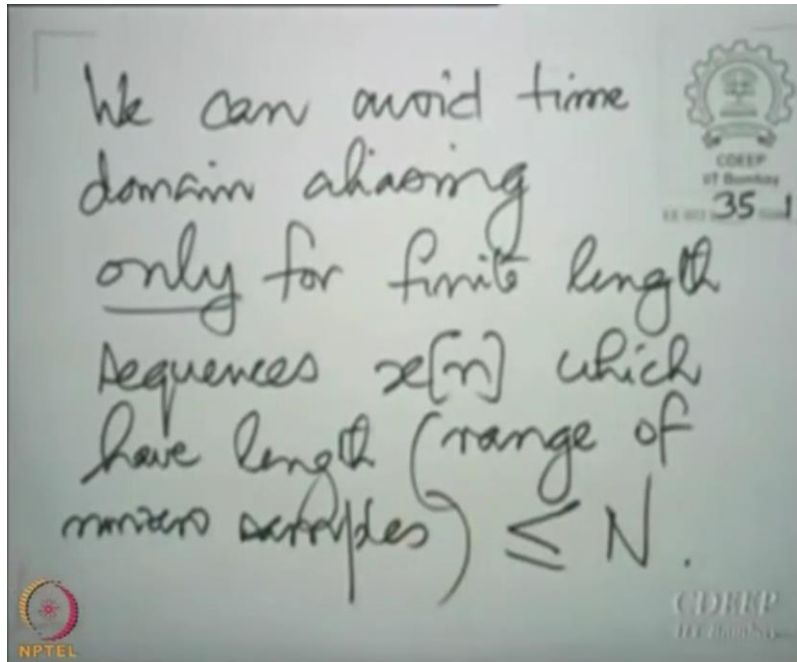 We can avoid time
domain aliasing
only for finite length
sequences x[n] which
have length (range of
nonzero samples) ≤ N.
CDEEP
IIT Bombay
35 1
CDEEP
IIT Bombay
NPTEL